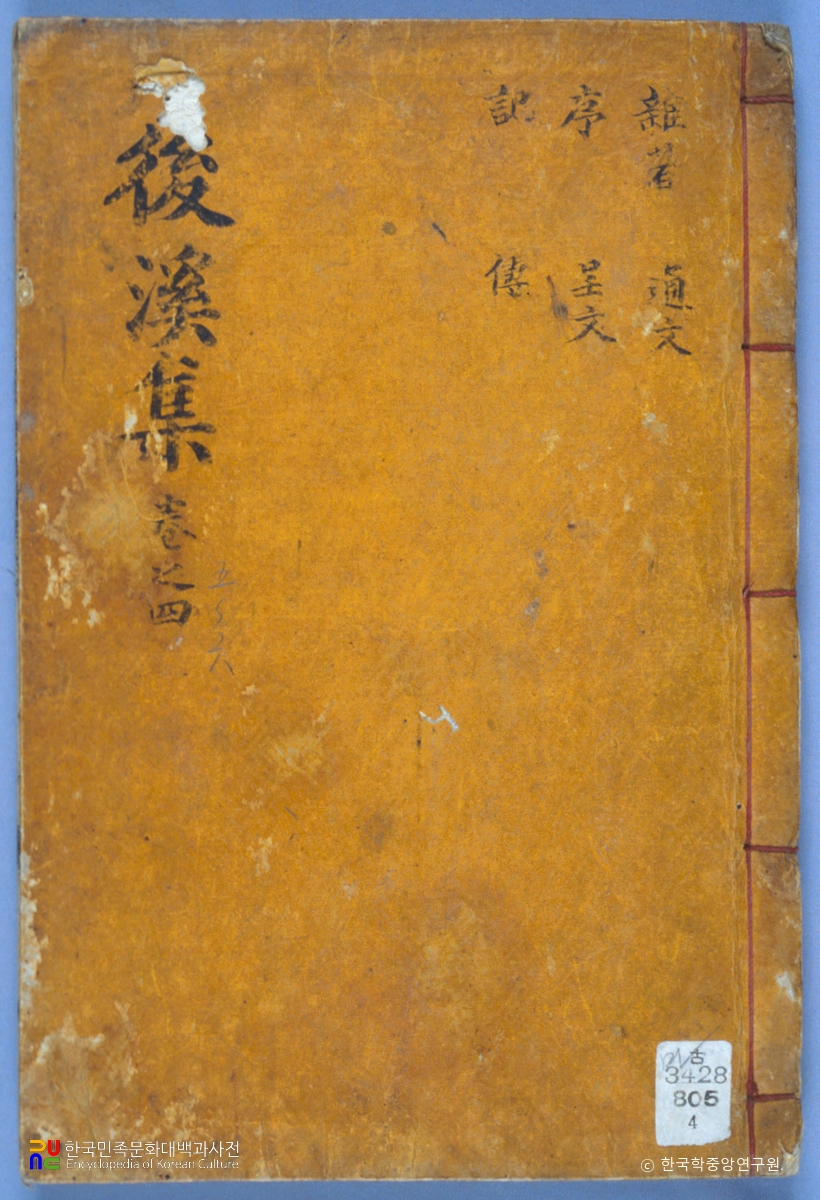 雜著 通文
序 呈文
記 傳
後溪集 卷之四
五、六
古
3428
805
4
한국민족문화대백과사전
Encyclopedia of Korean Culture
© 한국학중앙연구원